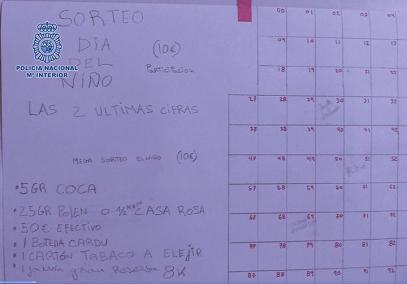 SORTEO
DIA
DEL
NIÑO
(10€)
Participacion
POLICÍA NACIONAL
Mº INTERIOR
LAS 2 ULTIMAS CIFRAS
MEGA SORTEO (10€)
•5GR COCA
•25GR POLEN O 1/2 CASA ROSA
•50€ EFECTIVO
•1 BOTELLA CARDU
•1 CARTÓN TABACO A ELEJIR
•1 gran Reserva 8K
00 01 02 03 04
09 10 11 12 13
18 19 20 21 22
27 28 29 30 31 32
37 38 39 40 41 42
47 48 49 50 51 52
57 58 59 60 61 62
67 68 69 70 71 72
77 78 79 80 81 82
87 88 89 90 91 92